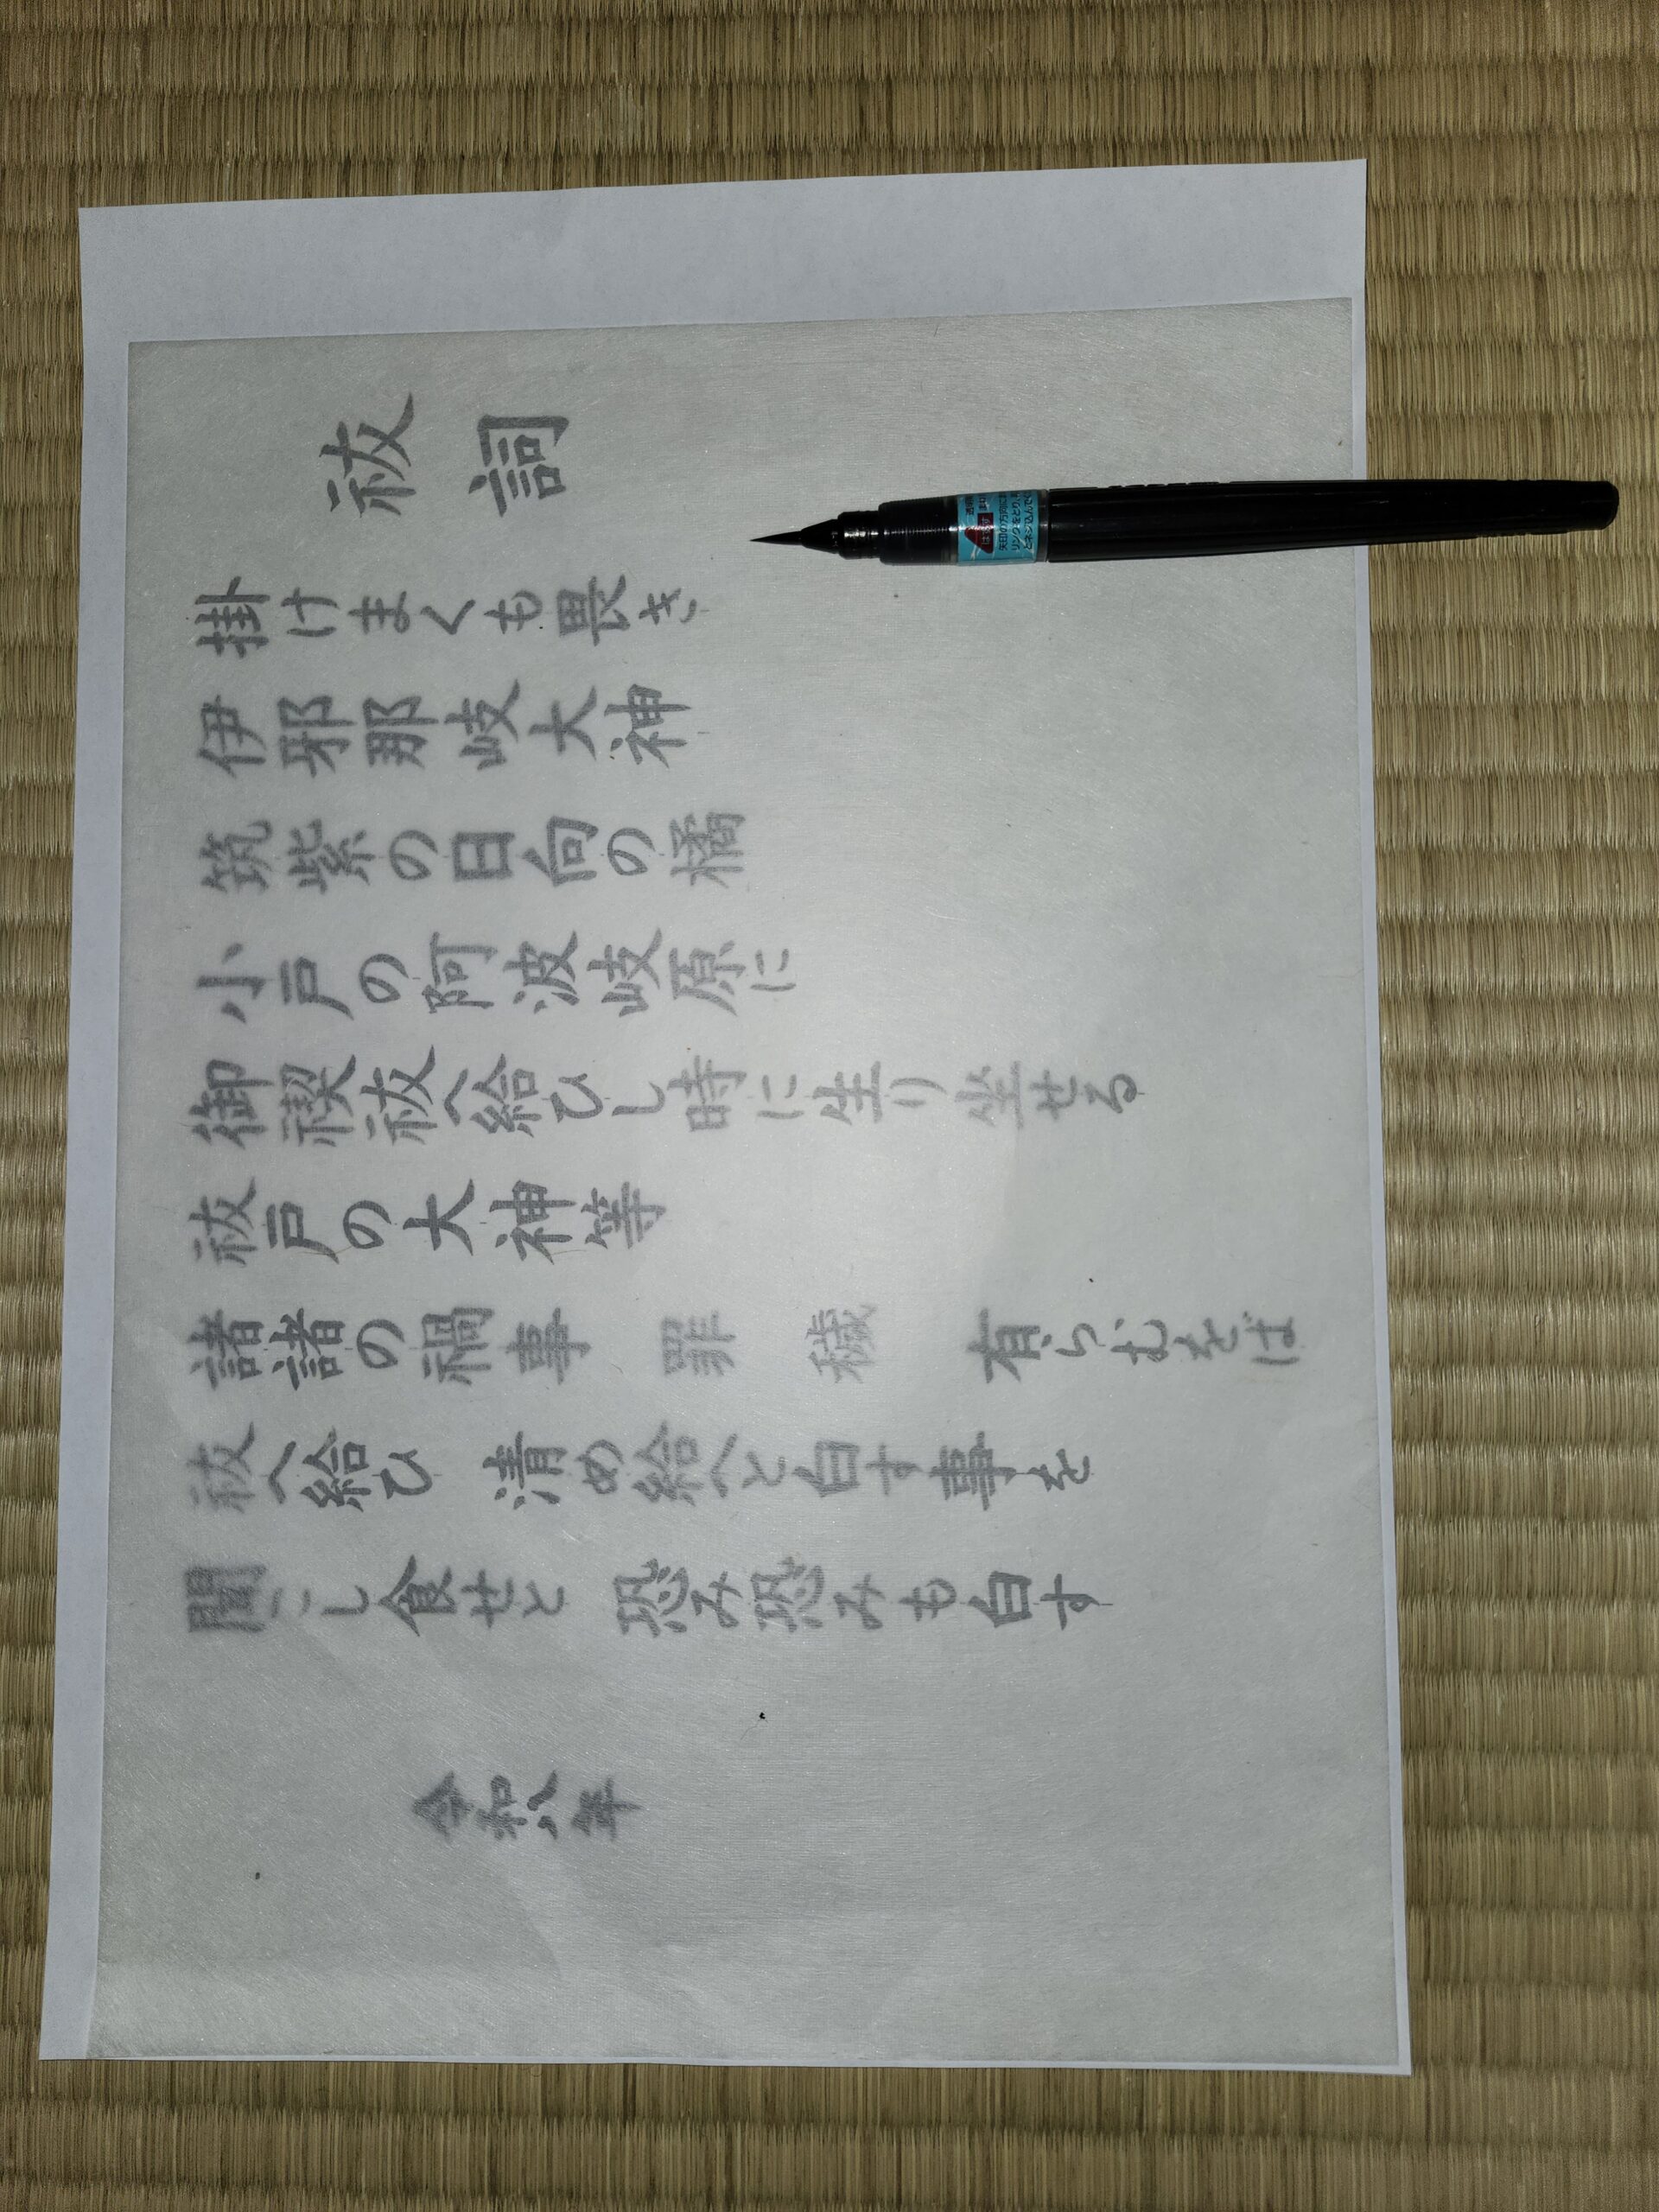 祓 詞
掛けまくも畏き
伊邪那岐大神
筑紫の日向の橘
小戸の阿波岐原に
御禊祓へ給ひし時に生り坐せる
祓戸の大神等
諸諸の禍事 罪 穢 有らむをば
祓へ給ひ 清め給へと白す事を
聞こし食せと 恐み恐みも白す
令和八年
矢印の方向に
リングをとり、
はずす